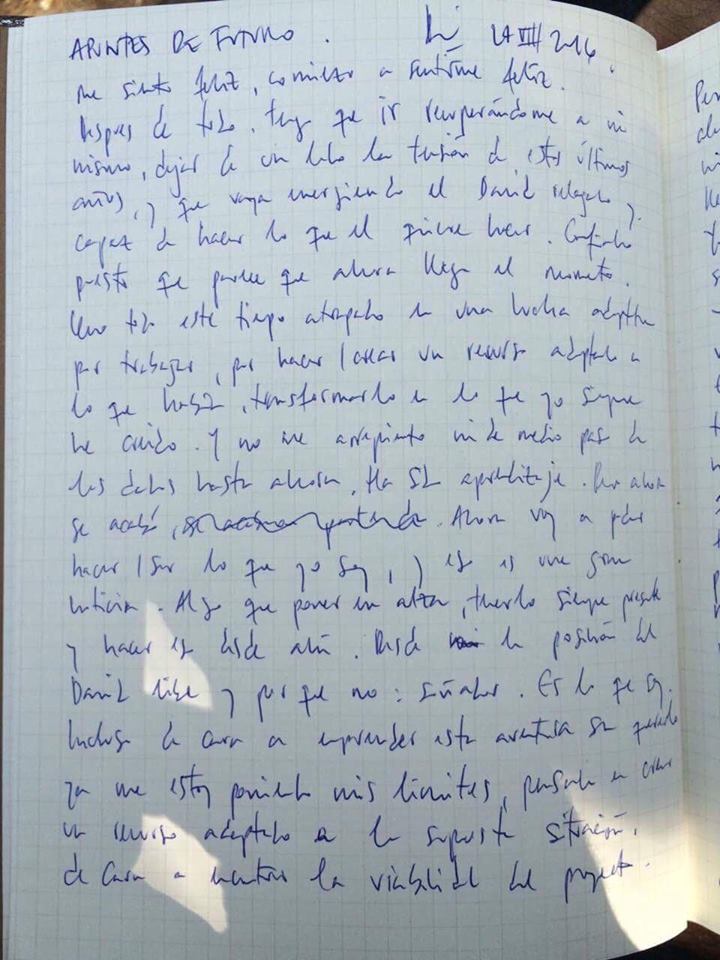 APUNTES DE FUTURO.
me siento feliz, comienzo a sentirme feliz.
Despues de todo, tengo que ir recuperándome a mi
mismo, dejar de un lado la tensión de estos últimos
años, y que vaya emergiendo el David relajado y
capaz de hacer lo que el quiere hacer.
puesto que parece que ahora llega el momento.
llevo todo este tiempo atrapado en una lucha
por trabajar, por hacer/crear un recurso adaptado a
lo que había, transformarlo en lo que yo siempre
he creído. Y no me arrepiento ni de medio paso de
los dados hasta ahora, Ha sido aprendizaje. Pero ahora
se acabó, Ahora voy a poder
hacer/ser lo que yo soy, y eso es una gran
noticia. Algo que poner en alza, tenerlo siempre presente
y hacer eso desde ahí. Desde la posición del
David libre y por que no: soñador. Es lo que soy.
Incluso de cara a emprender esta aventura sin quererlo
ya me estoy poniendo mis limites, pensando en crear
un recurso adaptado a la supuesta situación,
de cara a mantener la viabilidad del proyecto.